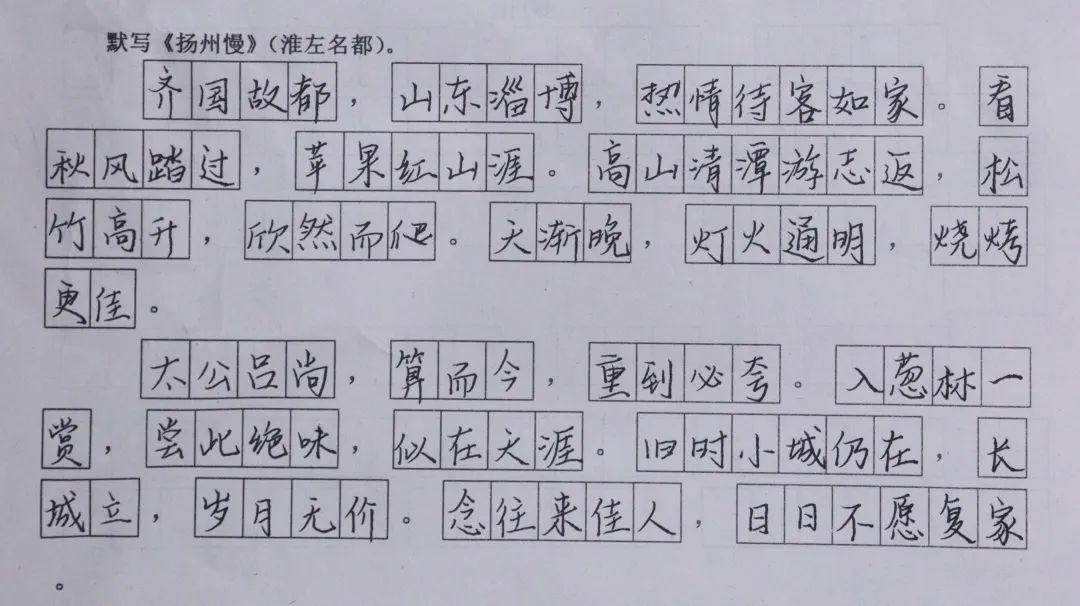 默写《扬州慢》（淮左名都）。
齐国故都，山东淄博，热情待客如家。看
秋风踏过，苹果红山涯。高山清潭游志返，松
竹高升，欣然而爬。天渐晚，灯火通明，烧烤
更佳。
太公吕尚，算而今，重到必夸。入葱林一
赏，尝此绝味，似在天涯。旧时小城仍在，长
城立，岁月无价。念往来佳人，日日不愿复家
。